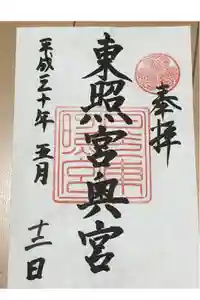 奉拝
東照宮奥宮
平成三十年 五月 十二日